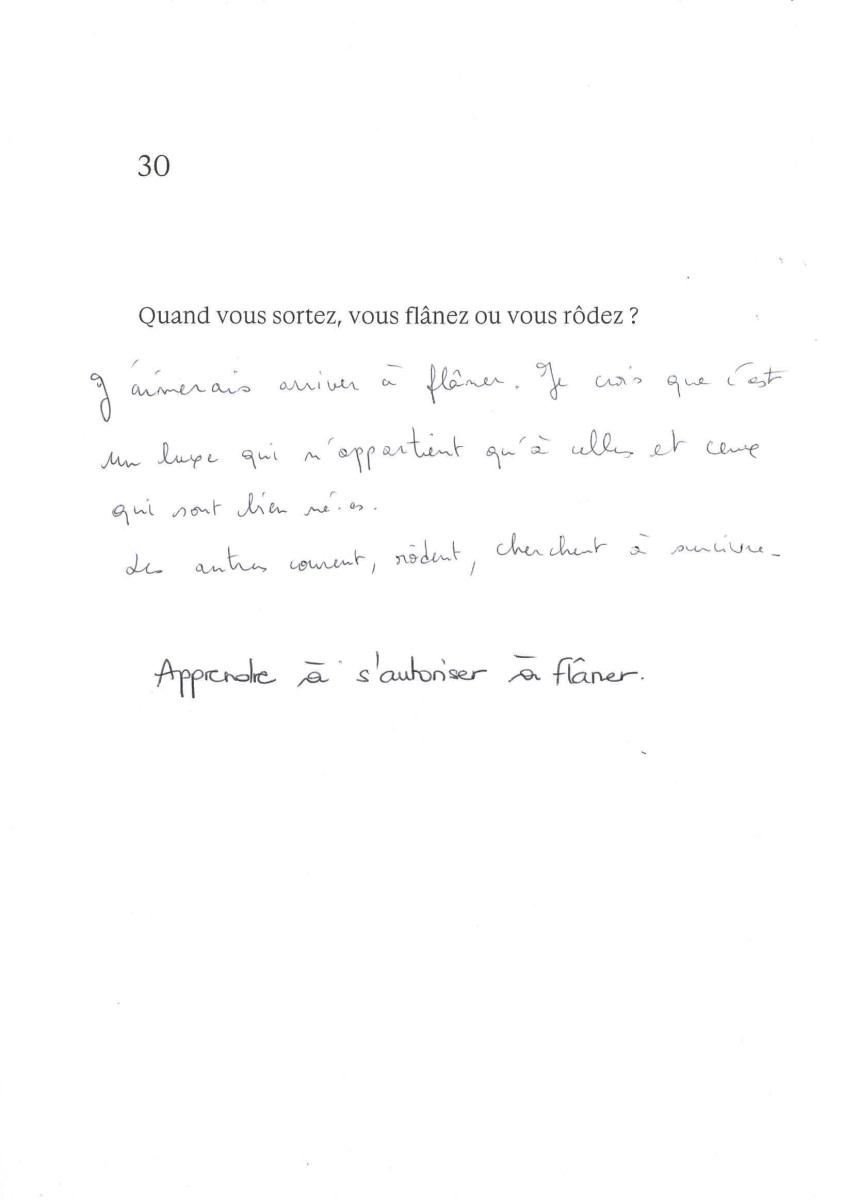 30
Quand vous sortez, vous flânez ou vous rôdez ?
J'aimerais arriver à flâner. Je crois que c'est
un luxe qui n'appartient qu'à celles et ceux
qui sont bien né.es.
Les autres courent, rôdent, cherchent à survivre_
Apprendre à s'autoriser à flâner.